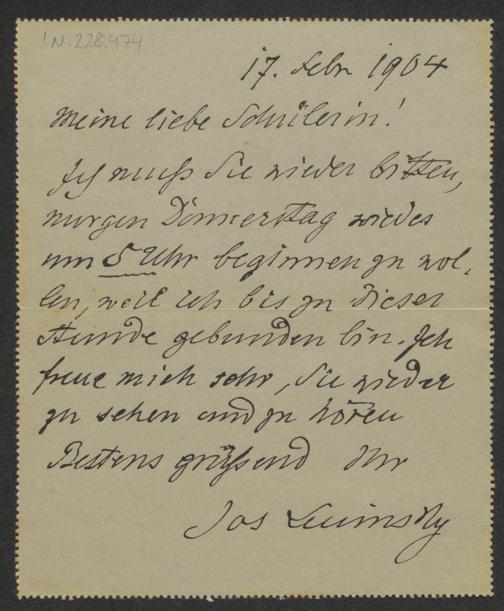 I.N. 228.474
17. Febr 1904
Meine liebe Schülerin!
Ich muß Sie wieder bitten,
morgen Donnerstag wieder
um 5 Uhr beginnen zu wol-
len, weil ich bis zu dieser
Stunde gebunden bin. Ich
freue mich sehr, Sie wieder
zu sehen und zu hören
Bestens grüßend Ihr
Jos Lewinsky